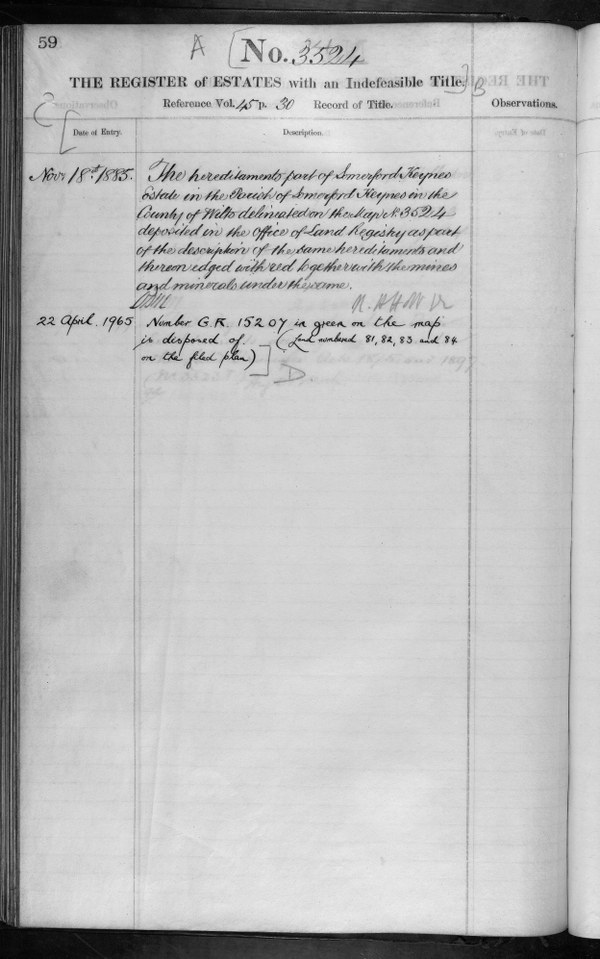 59
A [ No. 3524
THE REGISTER of ESTATES with an Indefeasible Title. ] B
C
[
Reference Vol. 45 p. 30 Record of Title.
Observations.
Date of Entry.
Description.
Novr 18th 1885.
The hereditaments part of Somerford Keynes
Estate in the Parish of Somerford Keynes in the
County of Wilts delineated on the Map No. 3524
deposited in the Office of Land Registry as part
of the description of the same hereditaments and
thereon edged with red together with the mines
and minerals under the same.
22 April. 1965
Number G.R. 15207 in green on the map
is disposed of. (Land numbered 81, 82, 83 and 84
on the filed plan) ]
D.